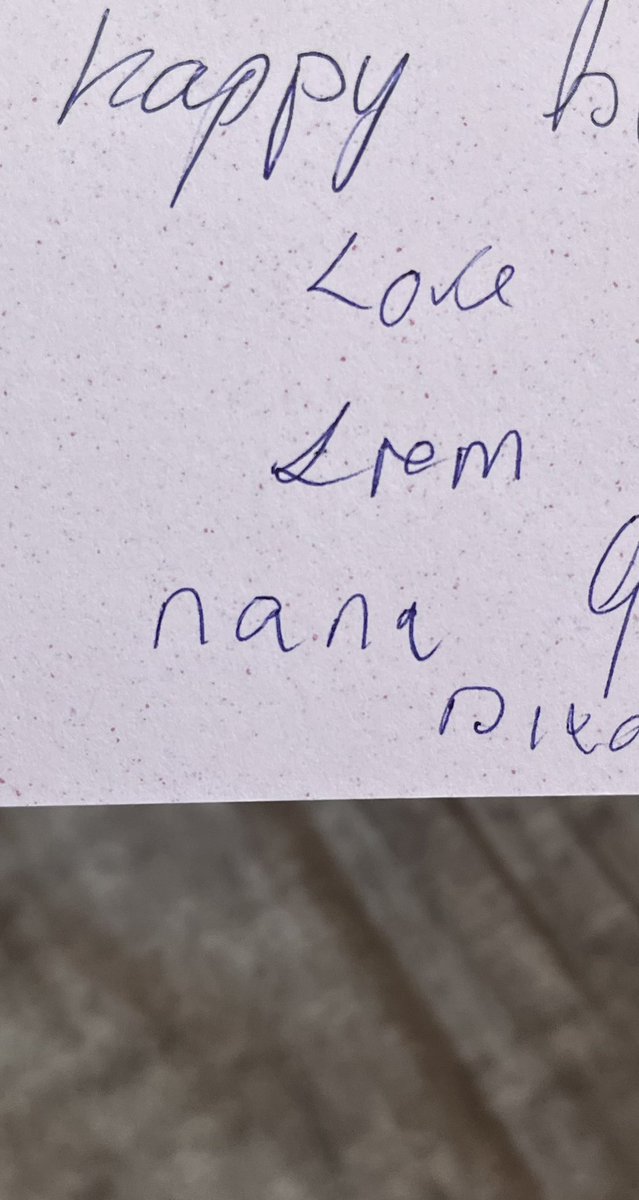 happy b
Love
from
nana